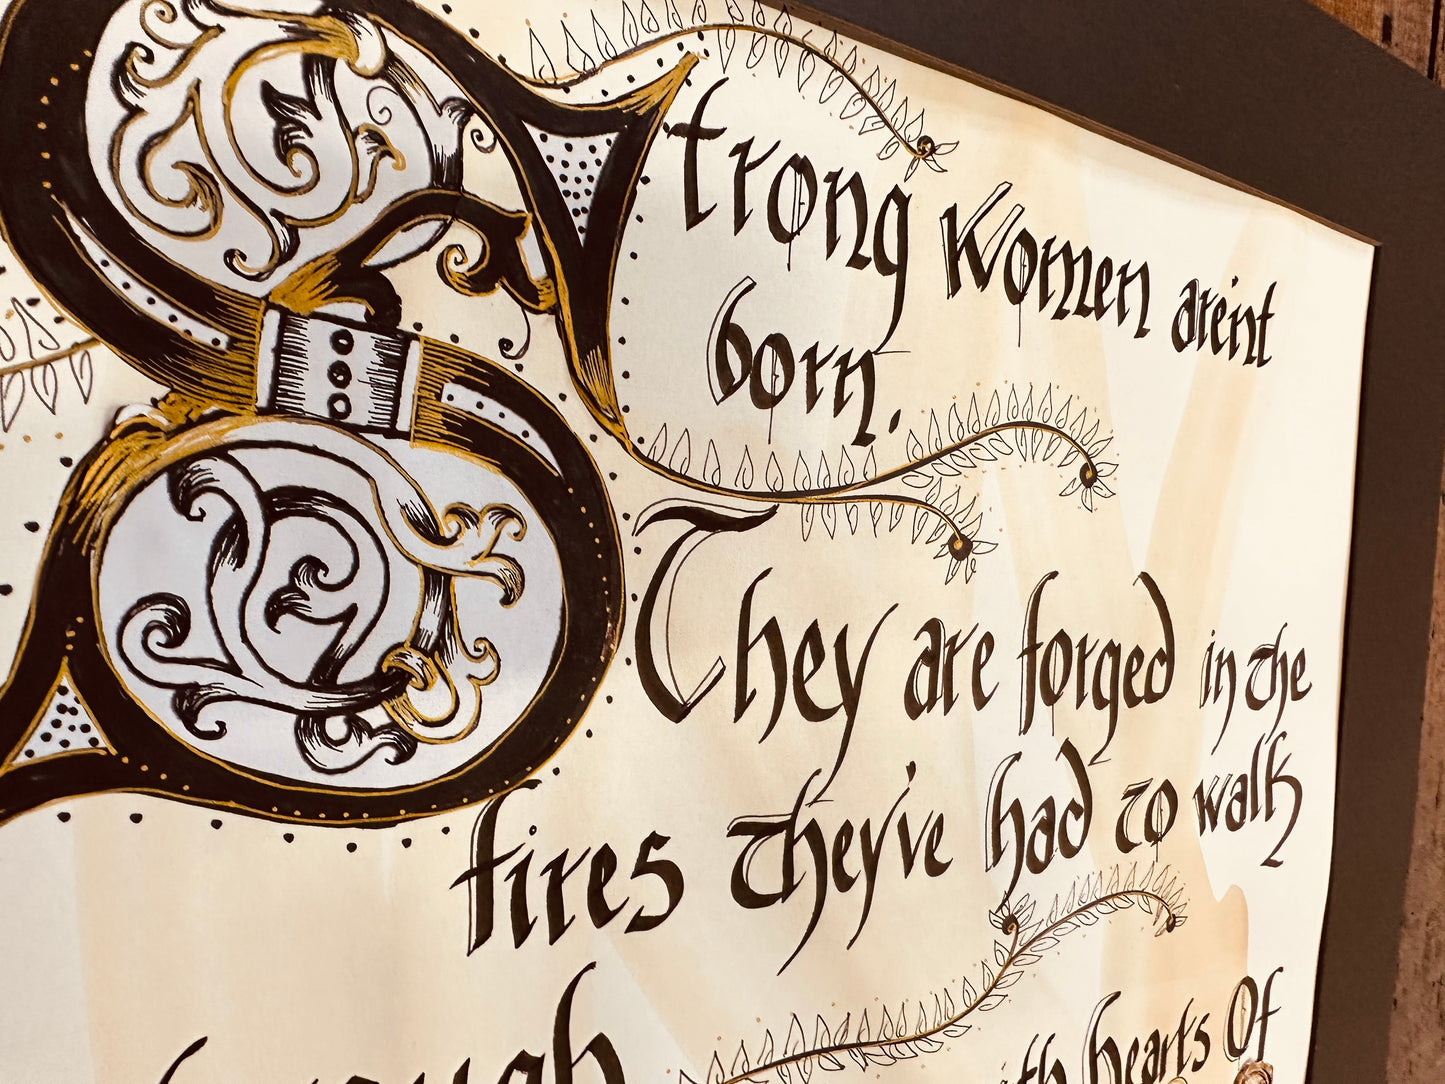 Strong Women aren't
born.
They are forged in the
fires they've had to walk
hearts Of